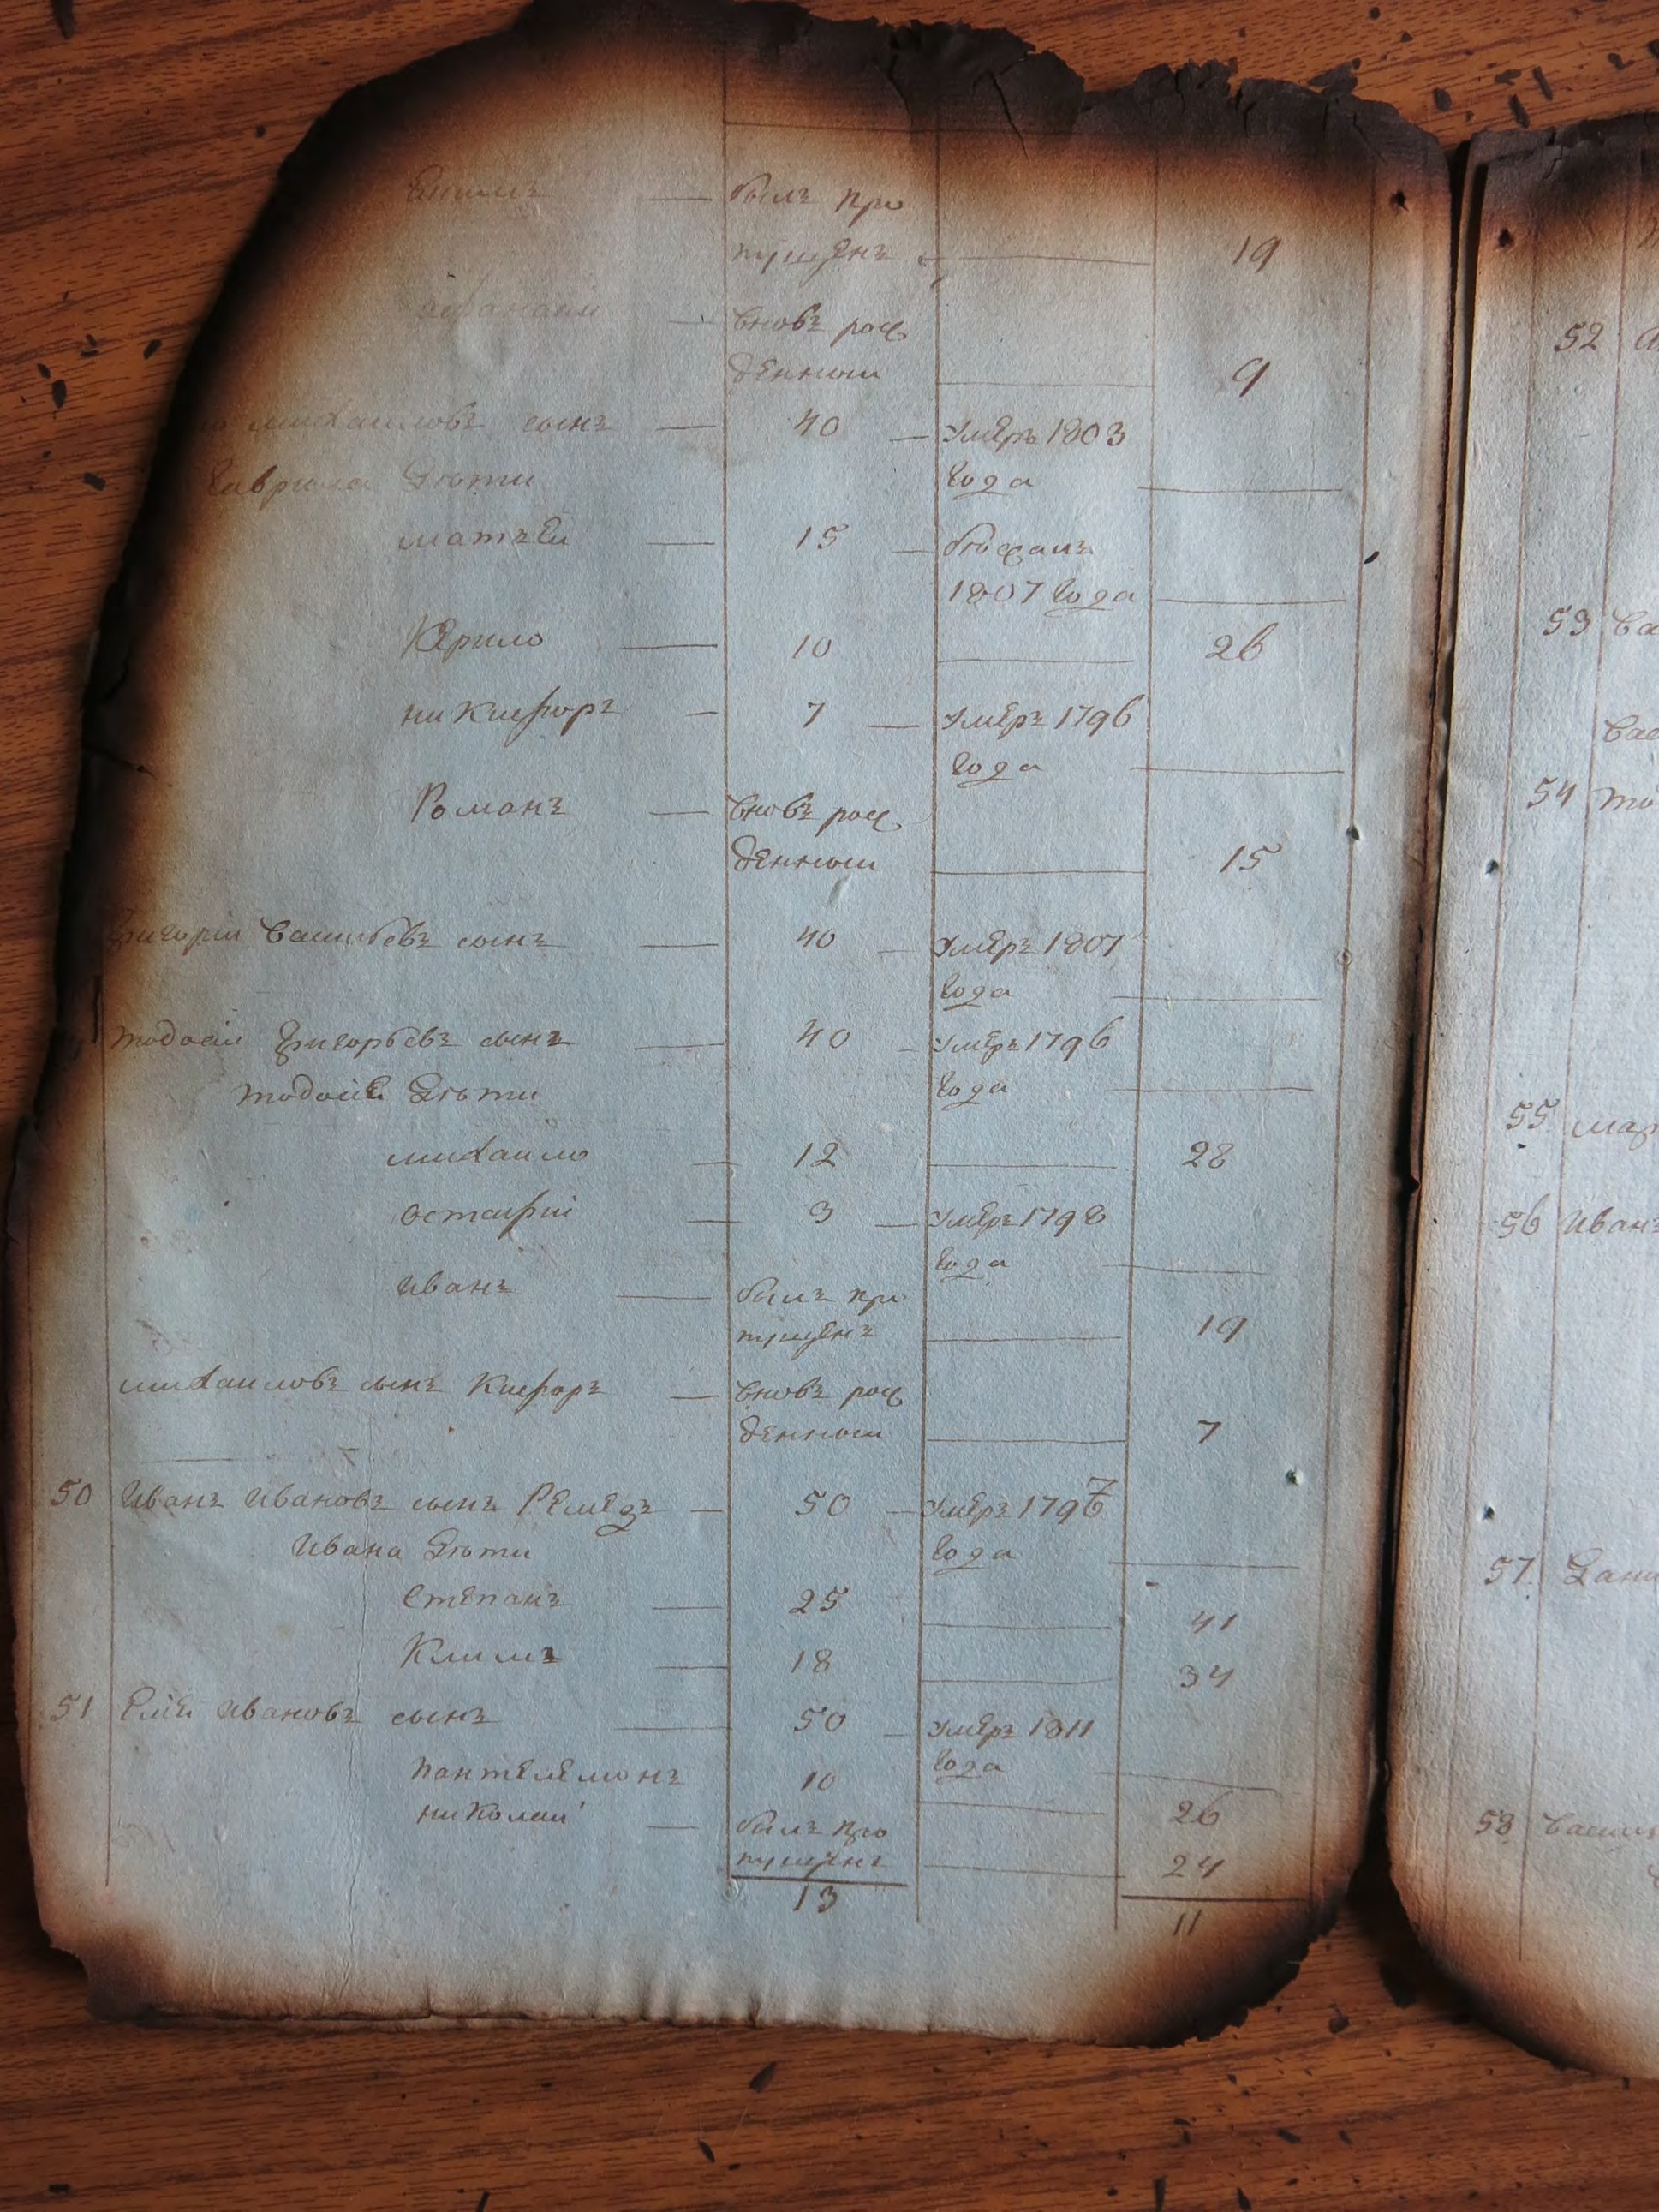 былъ про
пущенъ 19
вновъ рож
денный 9
михаиловъ сынъ 40 умеръ 1803
Гаврила дѣти года
матвеи 15 бѣжалъ
1807 года
Кѣрило 10 26
никифоръ 7 умеръ 1796
года
Романъ вновъ рож
денный 15
Григорій Васильевъ сынъ 40 умеръ 1807
года
тодосій Григорьевъ сынъ 40 умеръ 1796
тодосіе дѣти года
михаило 12 28
остафій 3 умеръ 1798
года
иванъ былъ про
пущенъ 19
михаиловъ сынъ Кифоръ вновъ рож
денный 7
50 Иванъ Ивановъ сынъ Ремезъ 50 умеръ 1797
Ивана дѣти года
Степанъ 25 41
Климъ 18 34
51 Ивановъ сынъ 50 умеръ 1811
года
пантелемонъ 10 26
николай былъ про
пущенъ 24
13 11
52
53
54
55
56 Иванъ
57
58